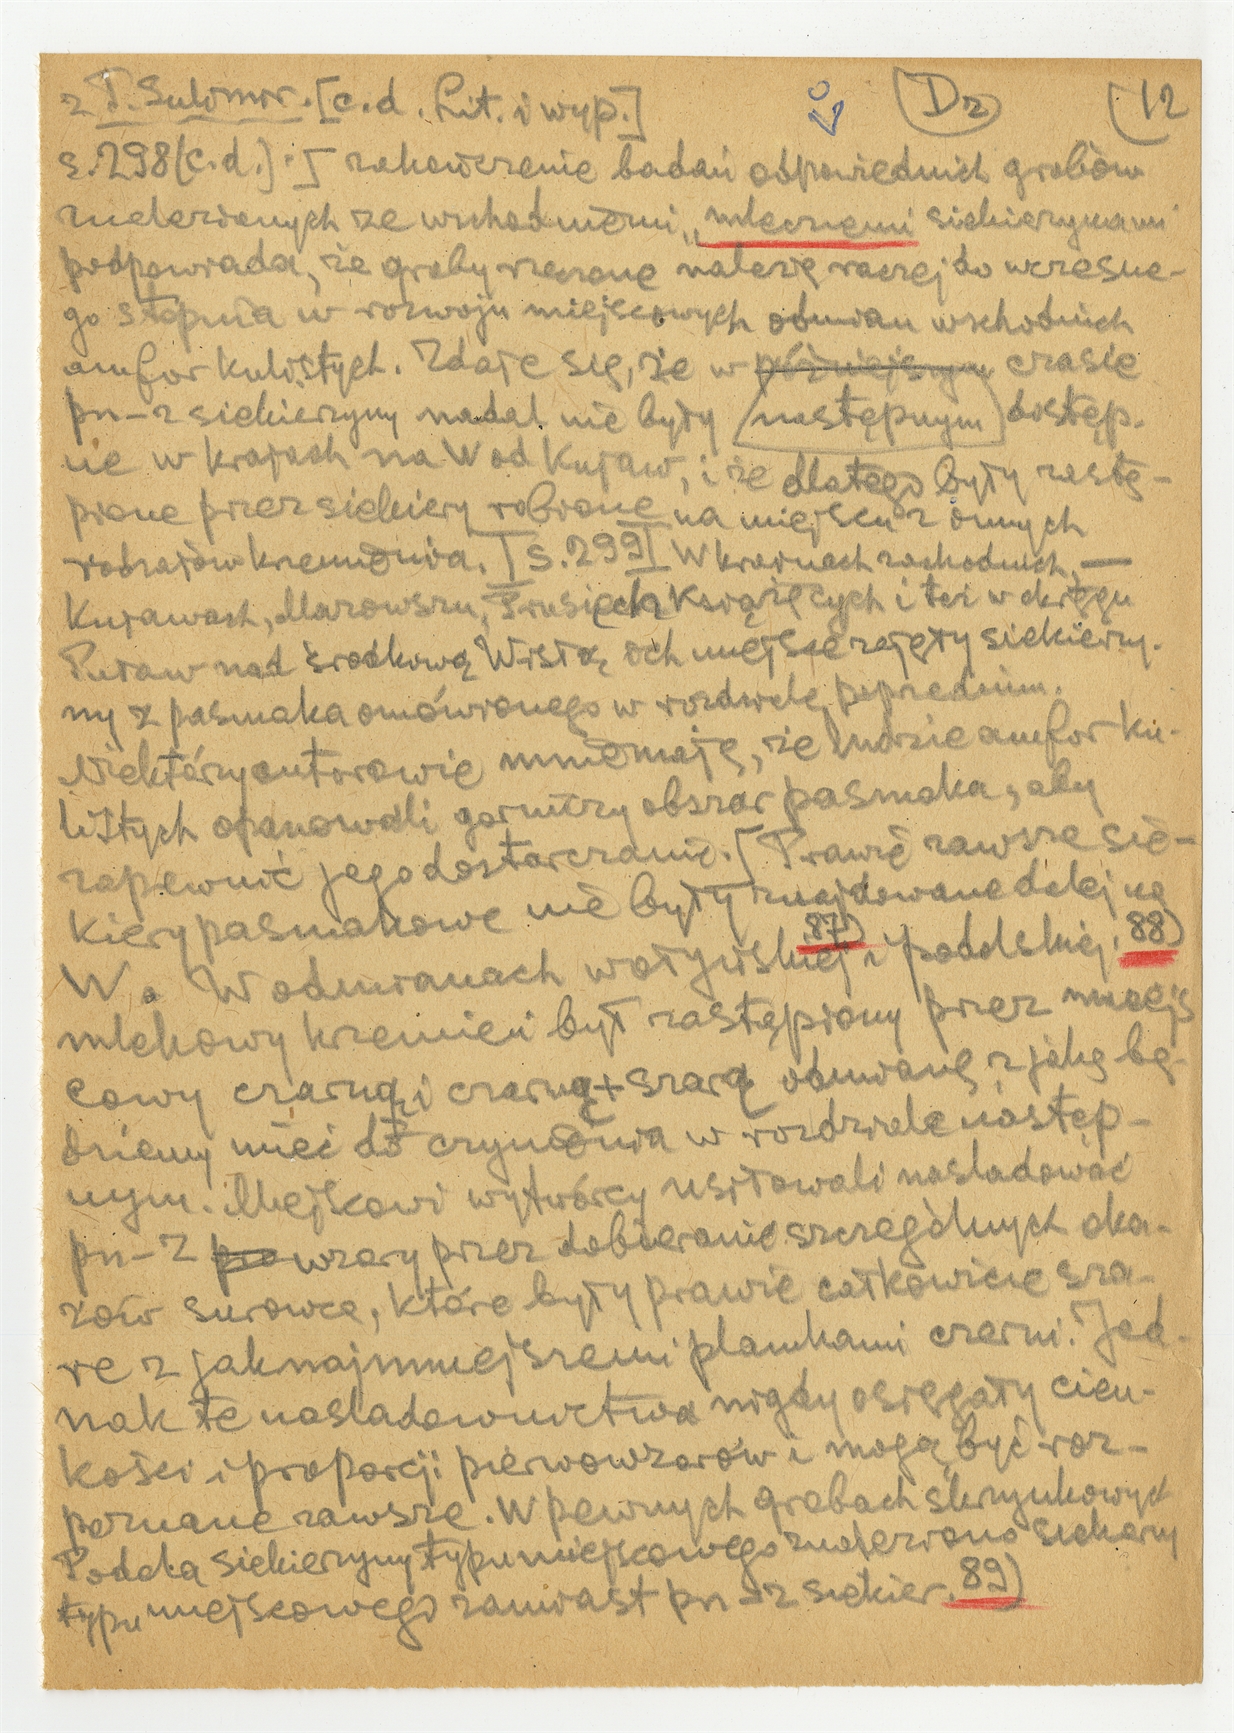 z T. Sulimir. [c.d. Lit. i wyp.] D2 12
s. 298 (c.d.).] zakończenie badań odpowiednich grobów
znalezionych ze wschodniemi „mlecznemi siekierzynami"
podpowiada, że groby rzeczone należą raczej do wczesne-
go stopnia w rozwoju miejscowych odmian wschodnich
amfor kulistych. Zdaje się, że w późniejszym czasie
pn-z siekierzyny nadal nie były następnym dostęp-
ne w krajach na W od Kujaw, i że dlatego były zastą-
pione przez siekiery robione na miejscu z innych
rodzajów krzemienia. [s. 299] W krainach zachodnich, —
Kujawach, Mazowszu, Prusiech Książęcych i też w okręgu
Puław nad środkową Wisłą ich miejsce zajęły siekierzy-
ny z pasmaka omówionego w rozdziale poprzednim.
Niektórzy autorowie mniemają, że ludzie amfor ku-
listych opanowali górniczy obszar pasmaka, aby
zapewnić jego dostarczanie. [Prawie zawsze sie-
kiery pasmakowe nie były znajdowane dalej na
W. W odmianach wołyńskiej 87) i podolskiej 88)
mlekowy krzemień był zastąpiony przez miejs
cowy czarną i czarną + szarą odmianę, z jaką bę-
dziemy mieć do czynienia w rozdziale następ-
nym. Miejscowi wytwórcy usiłowali naśladować
pn-z wzory przez dobieranie szczególnych oka-
zów surowca, które były prawie całkowicie sza-
re z jaknajmniejszemi plamkami czerni. Jed-
nak te naśladownictwa nigdy osięgały cien-
kości i proporcji pierwowzorów i mogą być roz-
poznane zawsze. W pewnych grobach skrzynkowych
Podola siekierzyny typu miejscowego znaleziono siekiery
typu miejscowego zamiast pn-z siekier. 89)